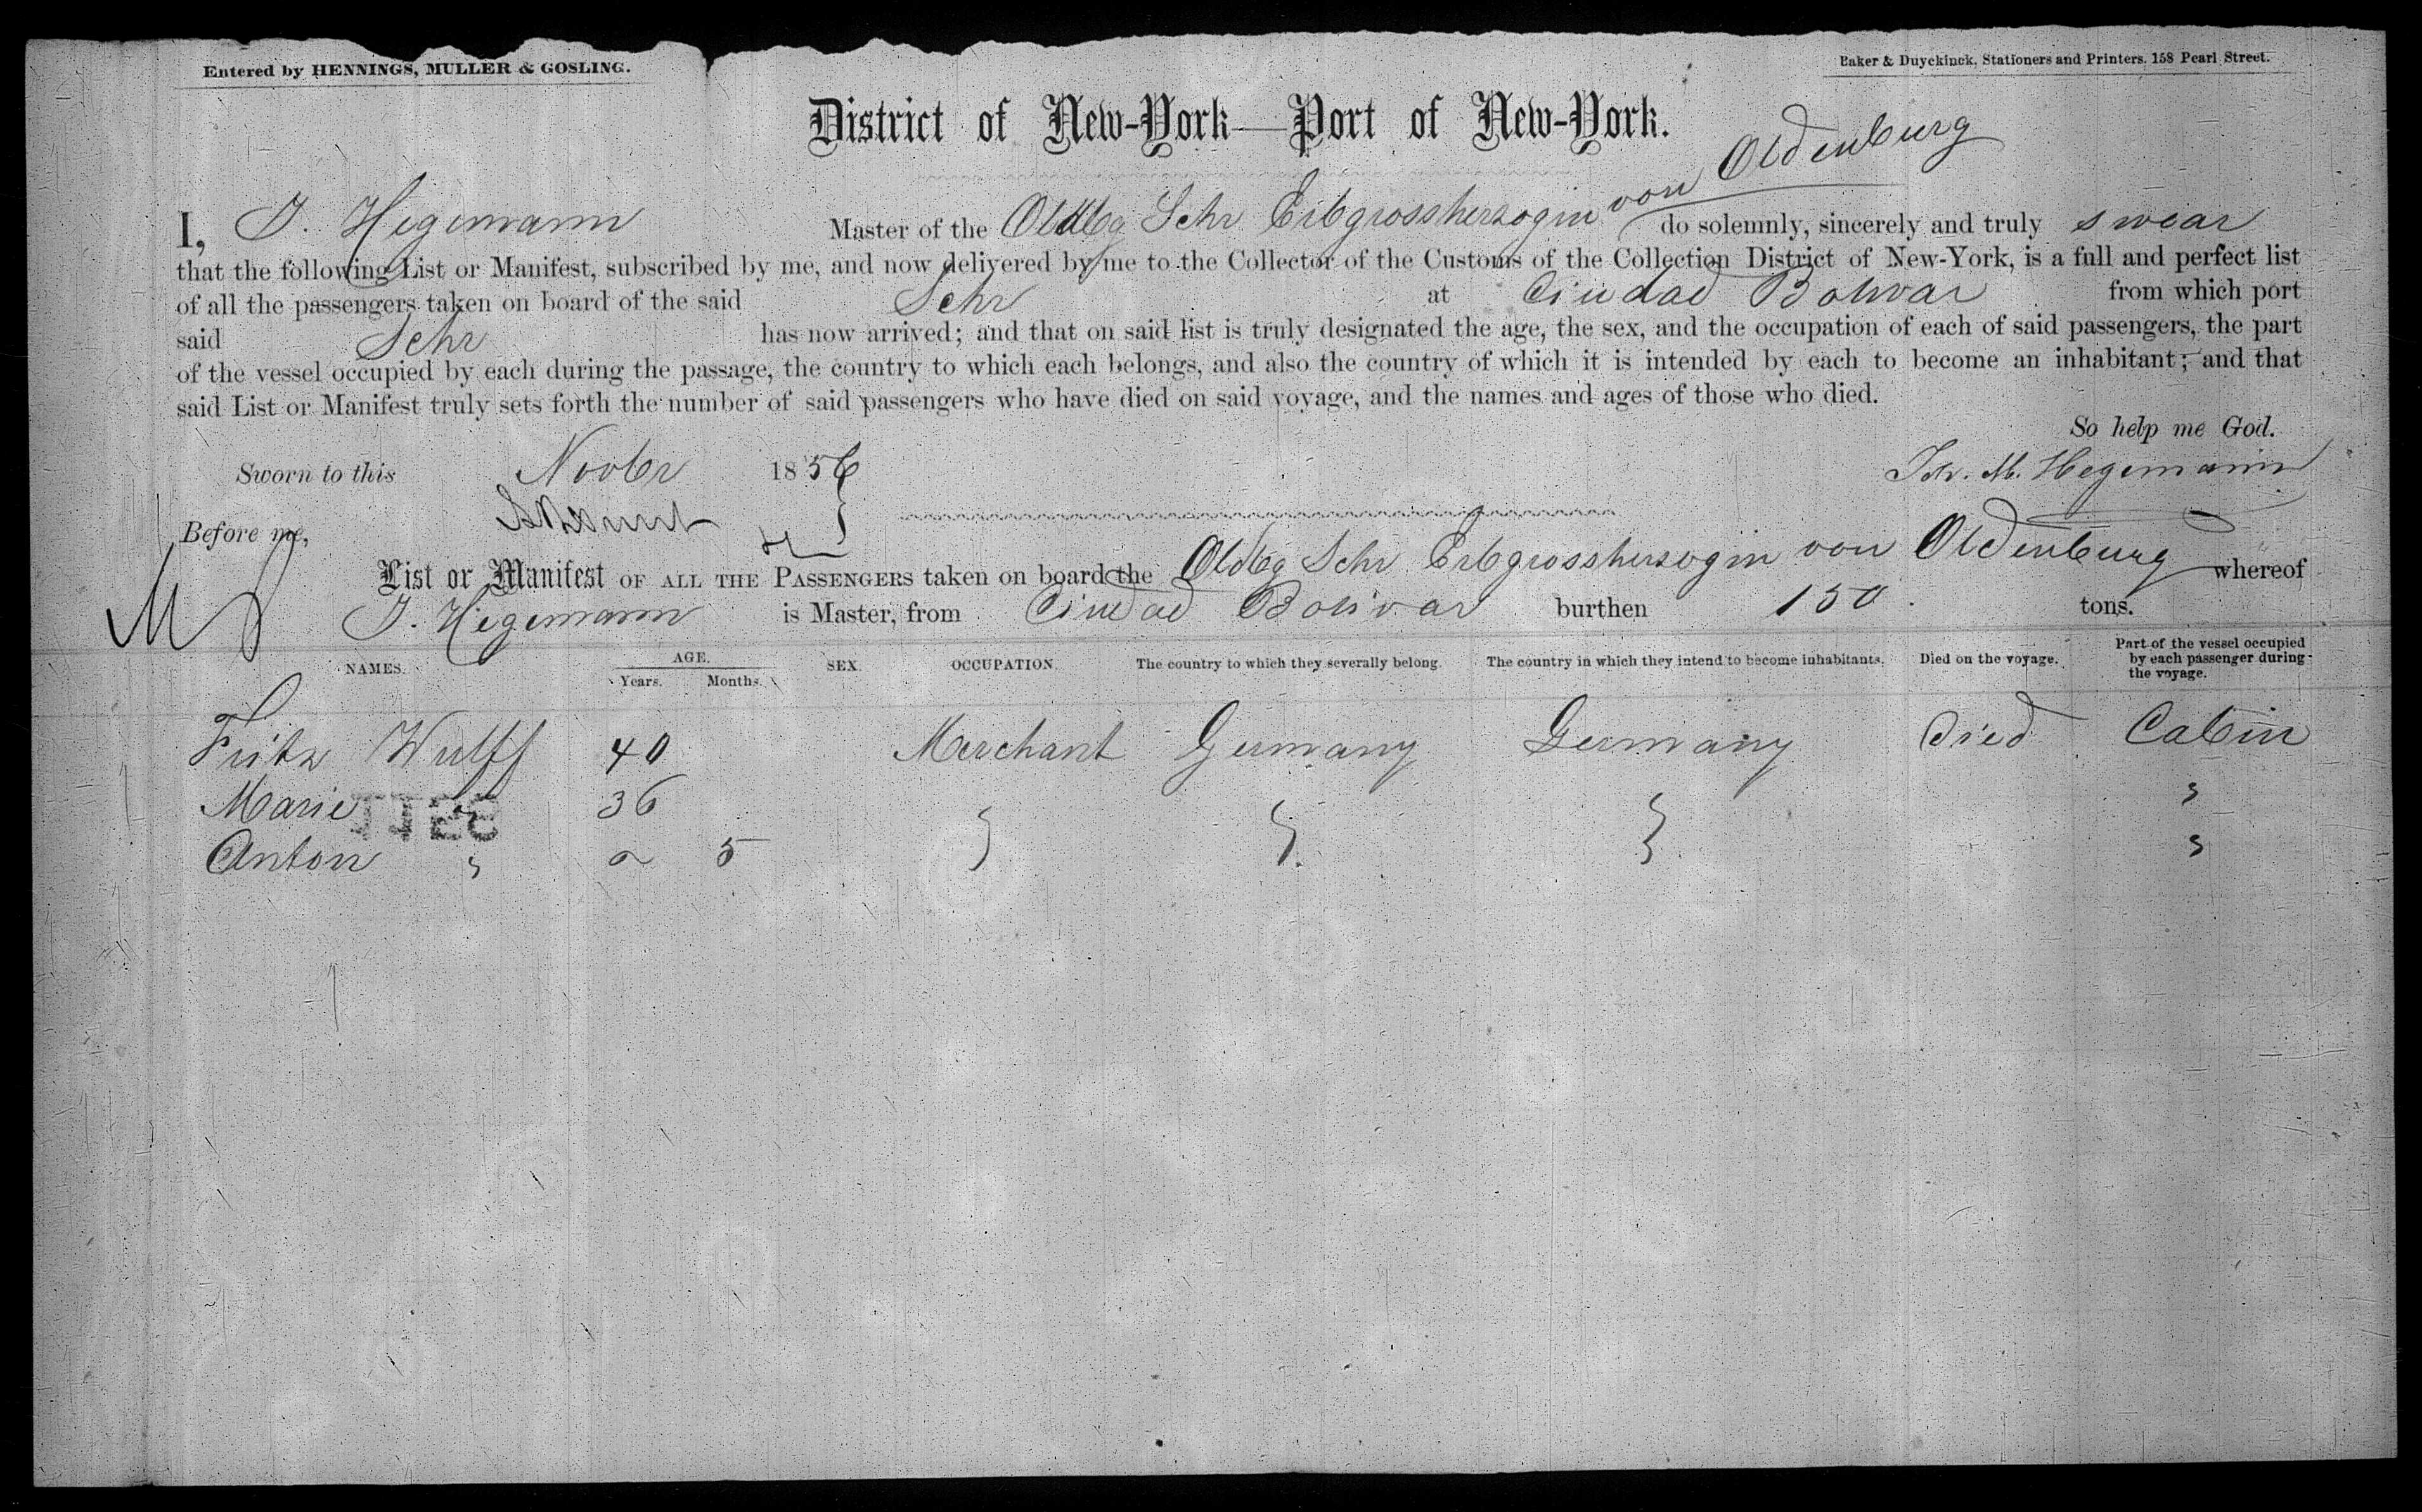 Entered by HENNINGS, MULLER & GOSLING.
Baker & Duyckinck, Stationers and Printers, 158 Pearl Street.
District of New-York—Port of New-York.
I, J. Hegemann Master of the Oldbg Schr Erbgrossherzogin von Oldenburg do solemnly, sincerely and truly swear
that the following List or Manifest, subscribed by me, and now delivered by me to the Collector of the Customs of the Collection District of New-York, is a full and perfect list
of all the passengers taken on board of the said Schr at Ciudad Bolivar from which port
said Schr has now arrived; and that on said list is truly designated the age, the sex, and the occupation of each of said passengers, the part
of the vessel occupied by each during the passage, the country to which each belongs, and also the country of which it is intended by each to become an inhabitant; and that
said List or Manifest truly sets forth the number of said passengers who have died on said voyage, and the names and ages of those who died.
So help me God.
Sworn to this Novbr 1856 Joh. M. Hegemann
Before me,
List or Manifest OF ALL THE PASSENGERS taken on board the Oldbg Schr Erbgrossherzogin von Oldenburg whereof
J. Hegemann is Master, from Ciudad Bolivar burthen 150 tons.
NAMES. AGE. Years. Months. SEX. OCCUPATION. The country to which they severally belong. The country in which they intend to become inhabitants. Died on the voyage. Part of the vessel occupied by each passenger during the voyage.
Fritz Wulff 40 Merchant Germany Germany Died Cabin
Marie " 36 "
Anton " " 5 "